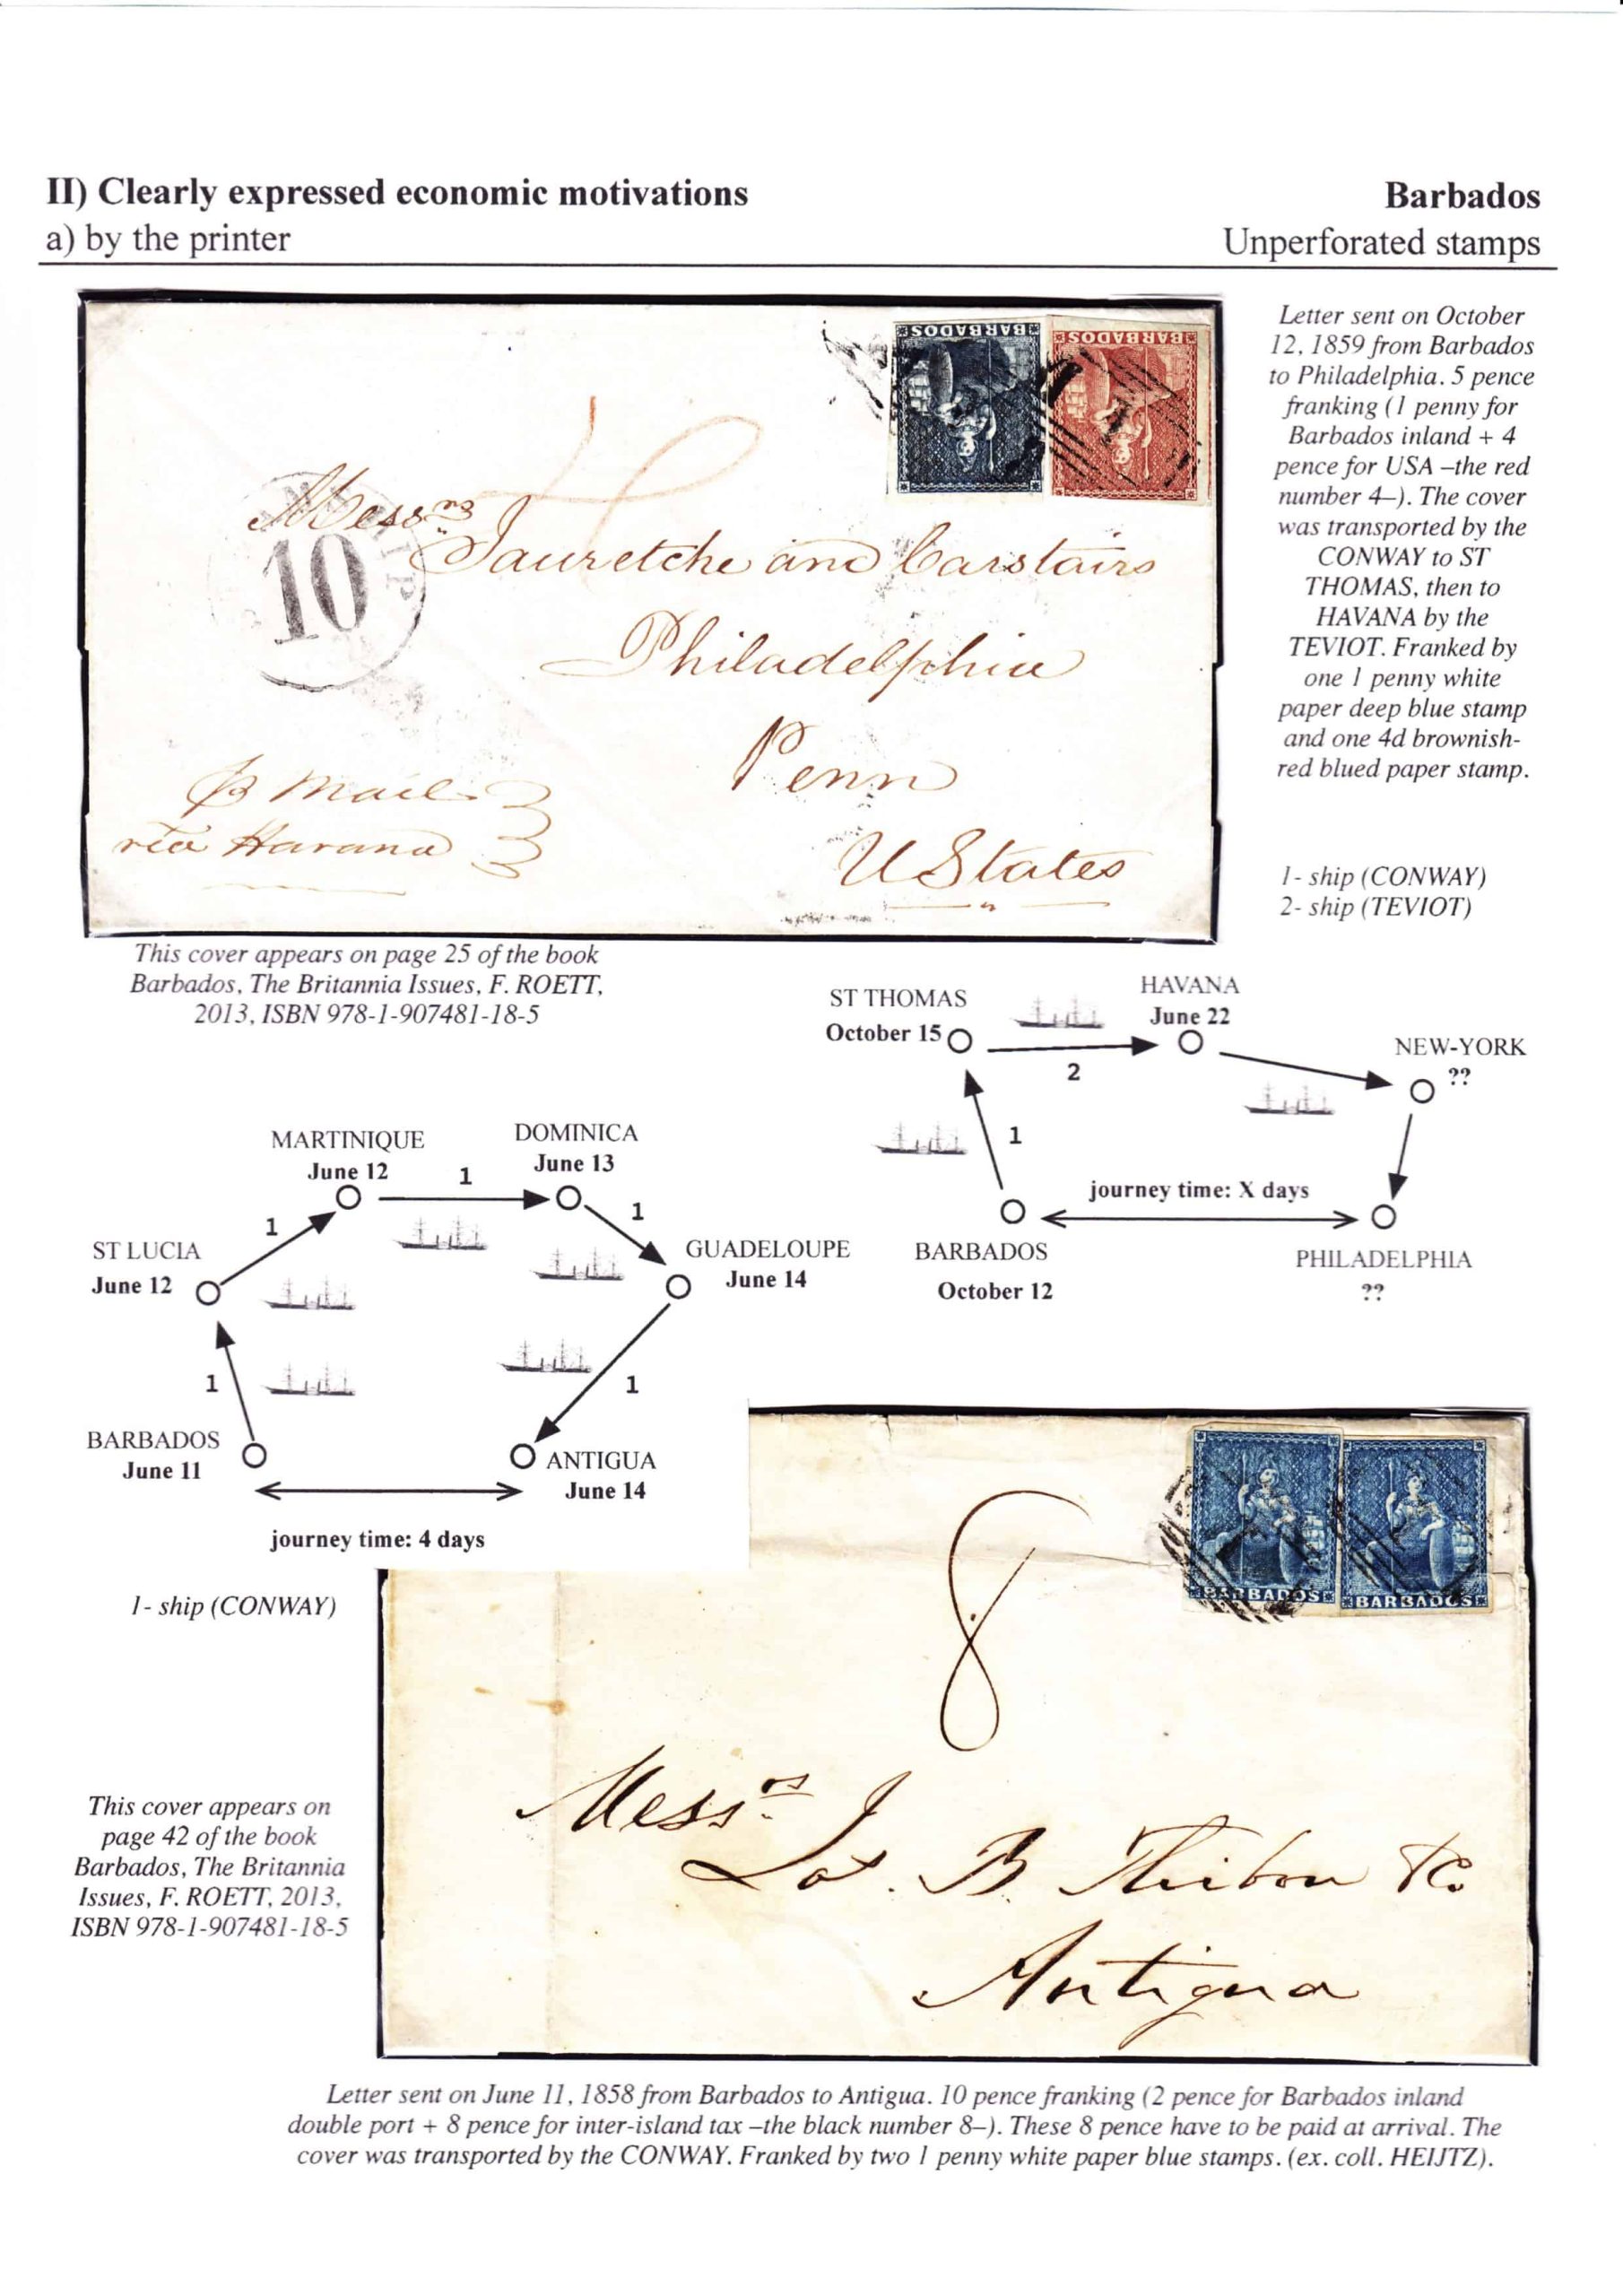 II) Clearly expressed economic motivations
Barbados
a) by the printer
Unperforated stamps
BARBADOS
BARBADOS
Messrs
10
Lauretche and Carstairs
Philadelphia
Penn
U States
p mail
via Havana
Letter sent on October
12, 1859 from Barbados
to Philadelphia. 5 pence
franking (1 penny for
Barbados inland + 4
pence for USA –the red
number 4–). The cover
was transported by the
CONWAY to ST
THOMAS, then to
HAVANA by the
TEVIOT. Franked by
one 1 penny white
paper deep blue stamp
and one 4d brownish-
red blued paper stamp.
1- ship (CONWAY)
2- ship (TEVIOT)
This cover appears on page 25 of the book
Barbados, The Britannia Issues, F. ROETT,
2013, ISBN 978-1-907481-18-5
ST THOMAS
October 15
HAVANA
June 22
2
NEW-YORK
??
1
journey time: X days
BARBADOS
October 12
PHILADELPHIA
??
MARTINIQUE
June 12
1
DOMINICA
June 13
1
1
ST LUCIA
June 12
GUADELOUPE
June 14
1
1
BARBADOS
June 11
ANTIGUA
June 14
journey time: 4 days
1- ship (CONWAY)
BARBADOS
BARBADOS
8
Messrs J
B Thibou & Co
Antigua
This cover appears on
page 42 of the book
Barbados, The Britannia
Issues, F. ROETT, 2013,
ISBN 978-1-907481-18-5
Letter sent on June 11, 1858 from Barbados to Antigua. 10 pence franking (2 pence for Barbados inland
double port + 8 pence for inter-island tax –the black number 8–). These 8 pence have to be paid at arrival. The
cover was transported by the CONWAY. Franked by two 1 penny white paper blue stamps. (ex. coll. HEIJTZ).